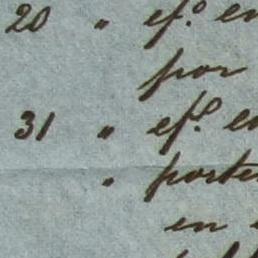 20 " ef.º en
por
31 " ef.º en
" porte
en